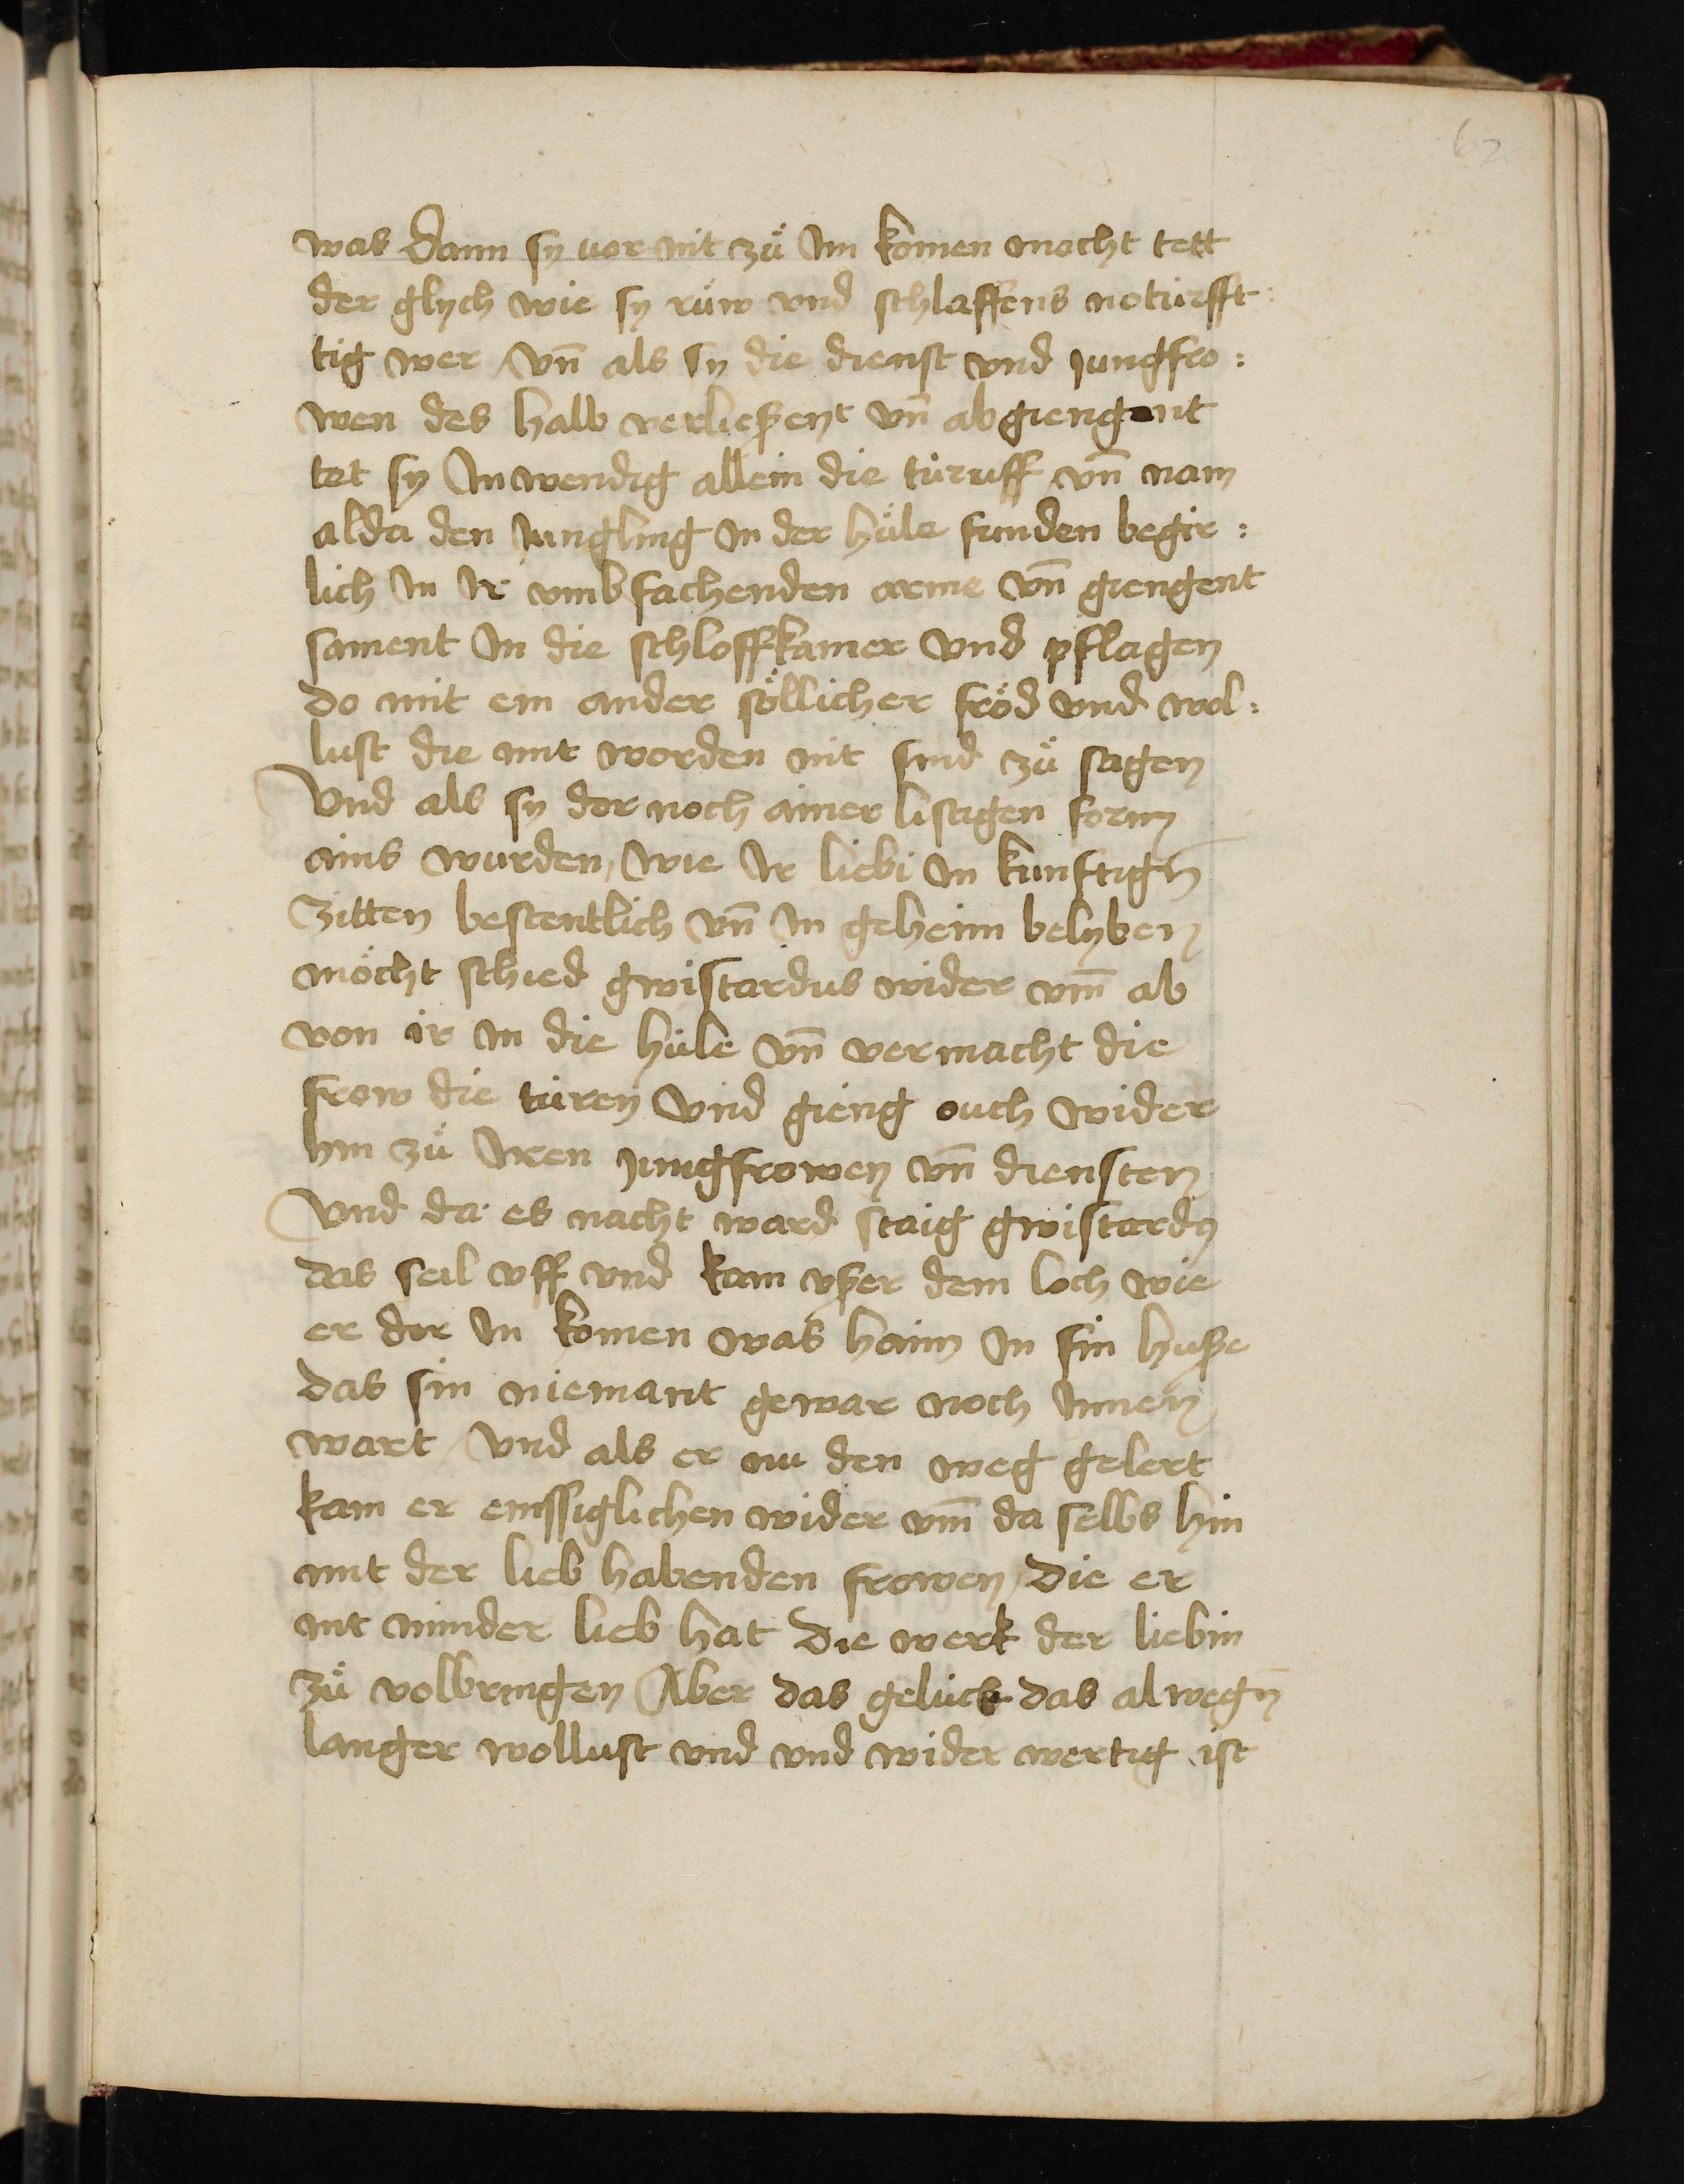 62
was dann sy vor nit zuͦ Im komen mocht tett
der glych wie sy ruͦw vnd schlaffens noturfft
tig wer / vn̄ als sy die dienst vnd jungfro :
wen des halb verließent vn̄ ab giengent
tet sy Inwendig allein die tür uff vn̄ nam
alda den Jungling In der hüle funden begir :
lich In Ir vmbfachenden arme vn̄ giengent
sament In die schloffkamer vnd pflagen
do mit ein ander söllicher fröd vnd wol :
lust die mit worden nit sind zuͦ sagen
Vnd als sy dor noch ainer listigen form
ains wurden, wie Ir liebi In kunftign̄
Zitten bestentlich vn̄ In geheim belyben
möcht schied gwistardus wider vm̄ ab
von ir In die hüle vn̄ vermacht die
frow die türen vnd gieng ouch wider
hin zuͦ Iren jungfrowen vn̄ diensten
Vnd da es nacht ward staig gwistardꝰ
das seil vff vnd kam vßer dem loch wie
er dor In komen was haim In sin huße
das sin niemant gewar noch Innen
wart / Vnd als er nu den weg gelert
kam er emssiglichen wider vm̄ da selbs hin
mit der lieb habenden frowen / die er
nit minder lieb hat die werk der liebin
zuͦ volbringen Aber das gelück das alwegn̄
langer wollust vnd vnd wider wertig ist